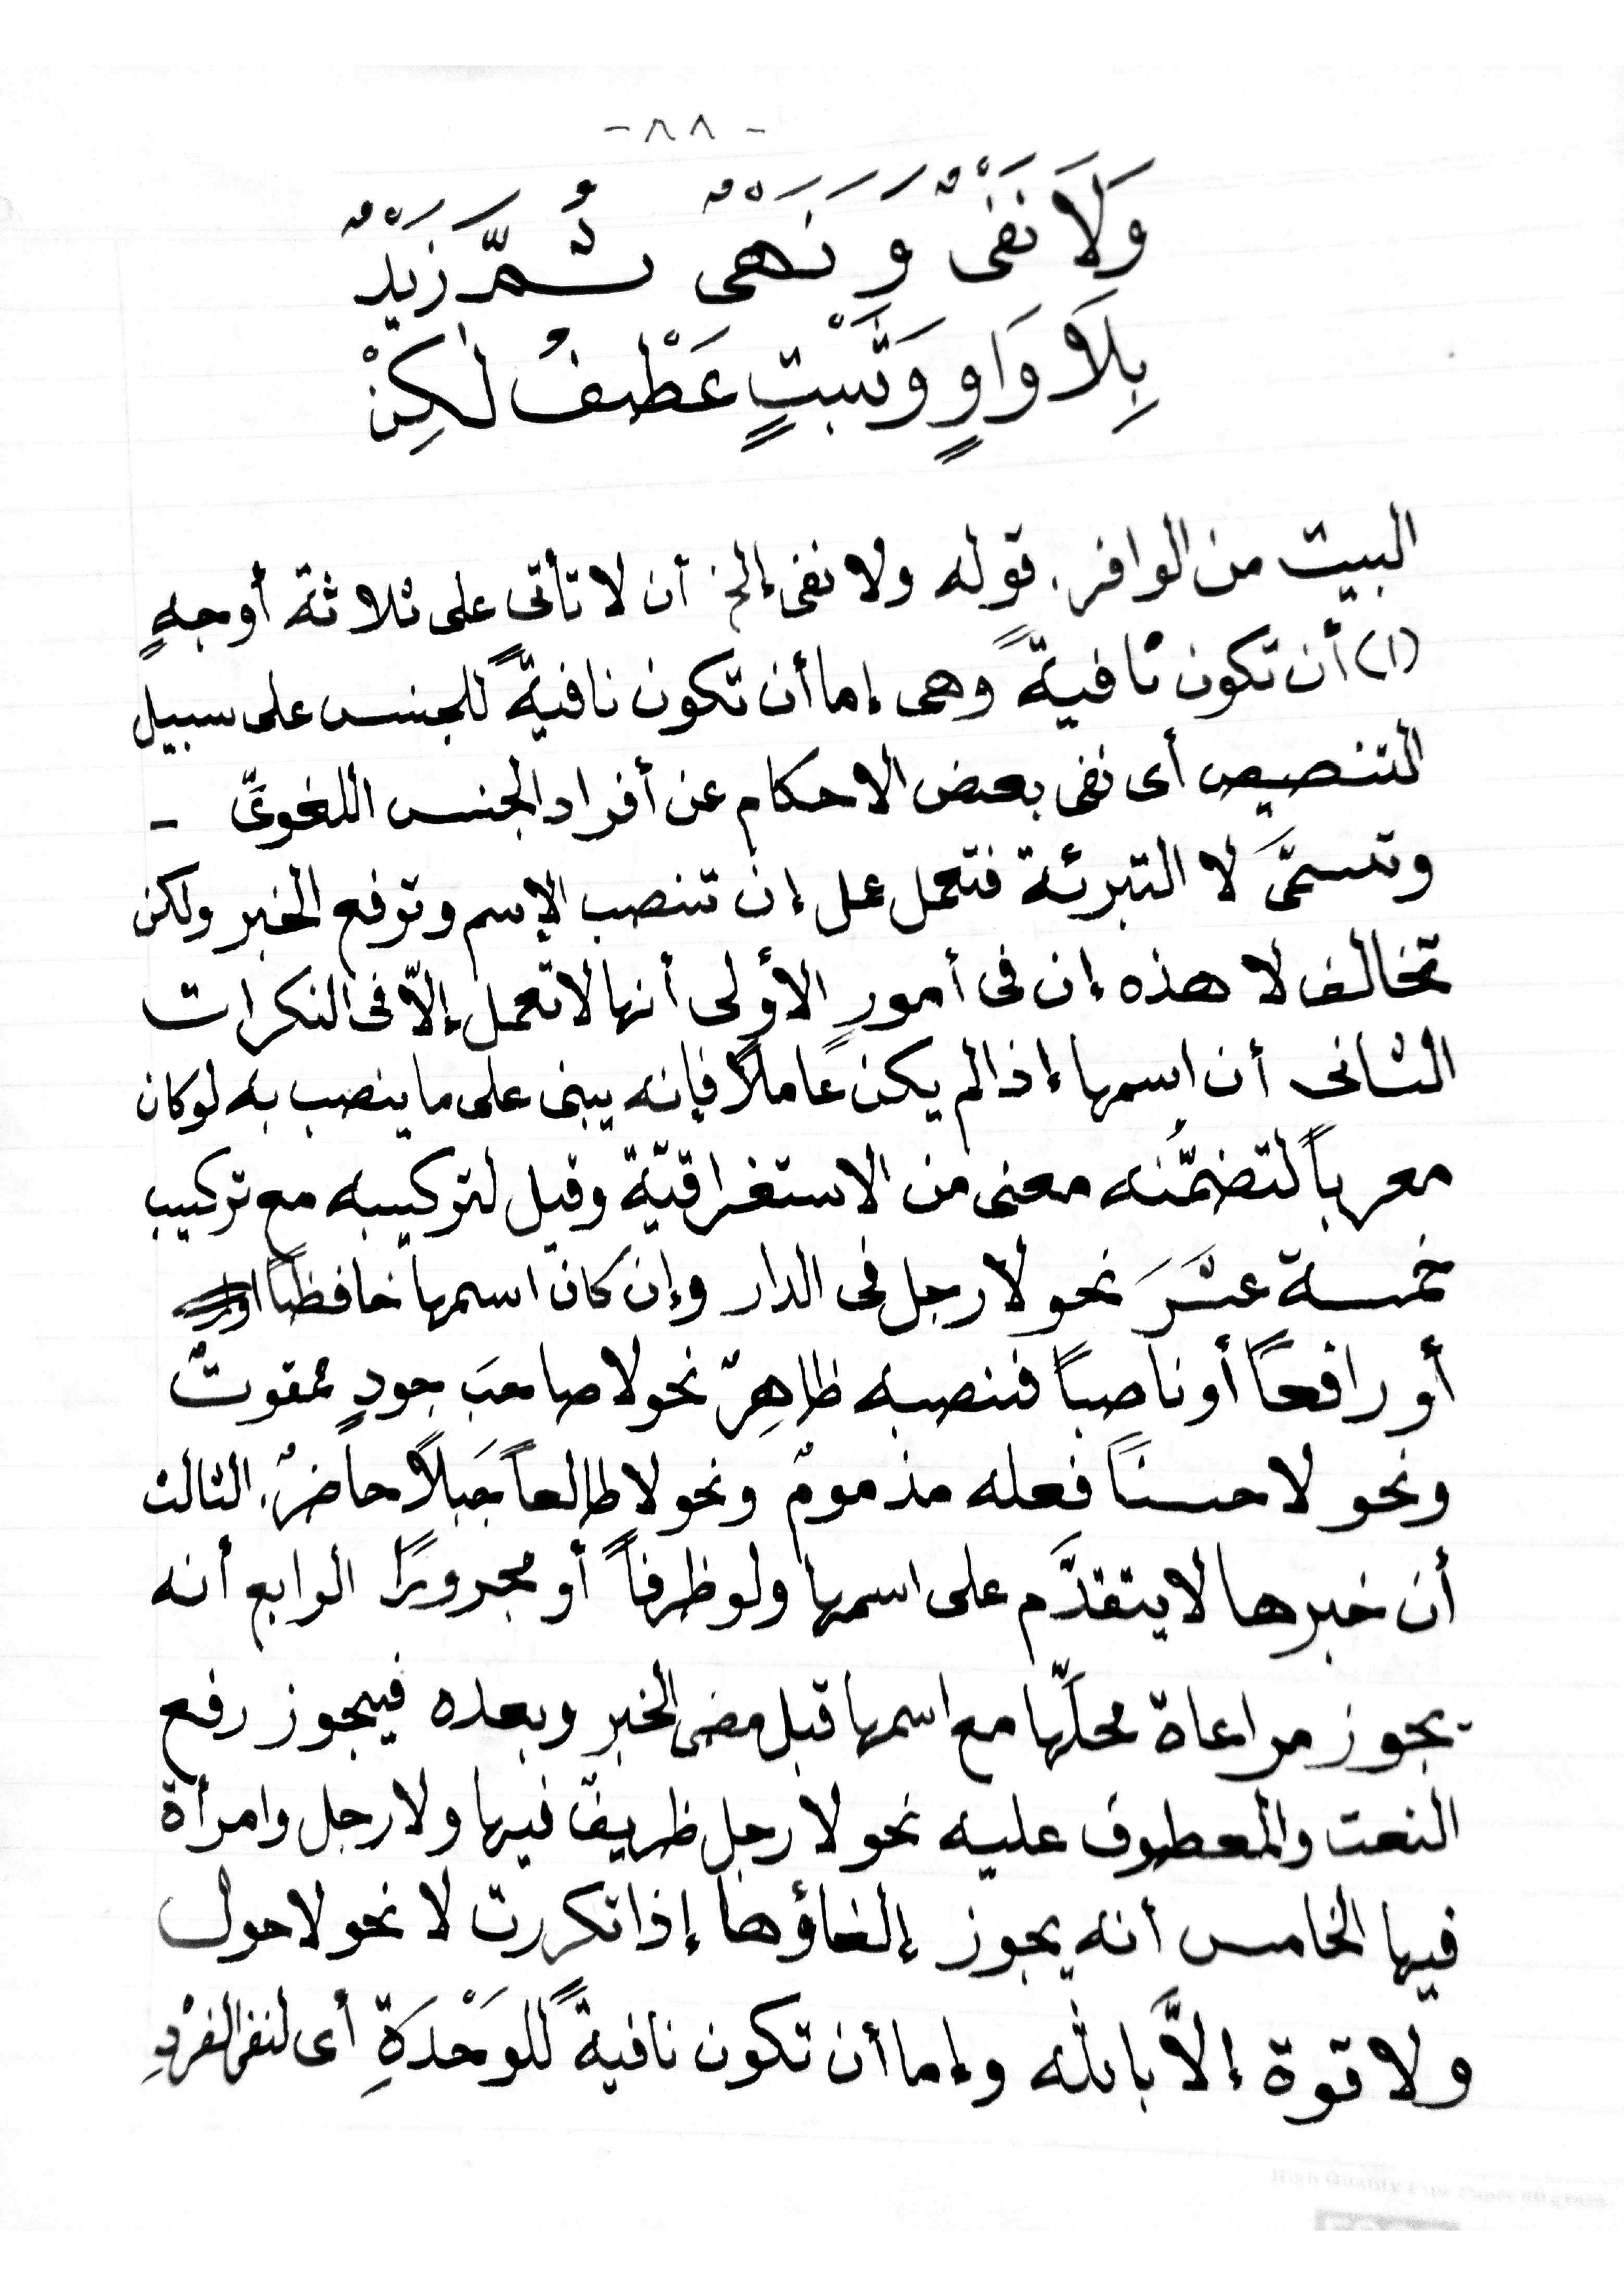 - ٨٨ -
وَلَا نَفْىٌ وَ نَهْىٌ ثُمَّ زَيْدٌ
بِلَا وَاوٍ وَثَبْتٍ عَطْفُ لٰكِنْ
البيت من الوافر. قوله ولا نفى إلخ أن لا تأتى على ثلاثة أوجهٍ
(١) أن تكون نافيةً وهى إما أن تكون نافيةً للجنس على سبيل
التنصيص أى نفى بعض الاحكام عن أفراد الجنس اللغوىّ -
وتسمّىَ لا التبرئة فتعمل عمل إن تنصب الإسم وترفع الخبر ولكن
تخالف لا هذه إن فى أمورٍ الأولى أنها لا تعمل إلاّ فى النكرات
الثانى أن اسمها إذا لم يكن عاملاً فإنه يبنى على ما ينصب به لو كان
معرباً لتضمّنه معنى من الاستغراقيّة وقيل لتركيبه مع تركيب
خمسة عشَرَ نحو لا رجل فى الدار وإن كان اسمها خافظًا
أو رافعًا أو ناصباً فنصبه ظاهِرٌ نحو لا صاحبَ جودٍ ممقوتٌ
ونحو لا حسنًا فعله مذمومٌ ونحو لا طالعاً جَبلاً حاضرٌ. الثالث
أن خبرها لا يتقدَّم على اسمها ولو ظرفاً أو مجرورًا الرابع أنه
يجوز مراعاة محلّها مع اسمها قبل مضى الخبر وبعده فيجوز رفع
النعت والمعطوف عليه نحو لا رجل ظريفٌ فيها ولا رجل وامرأة
فيها الخامس أنه يجوز إلغاؤها إذا تكررت لا نحو لا حول
ولا قوة إلاَّ بالله وإما أن تكون نافيةً للوَحْدَةِ أى لنفى الفرْدِ